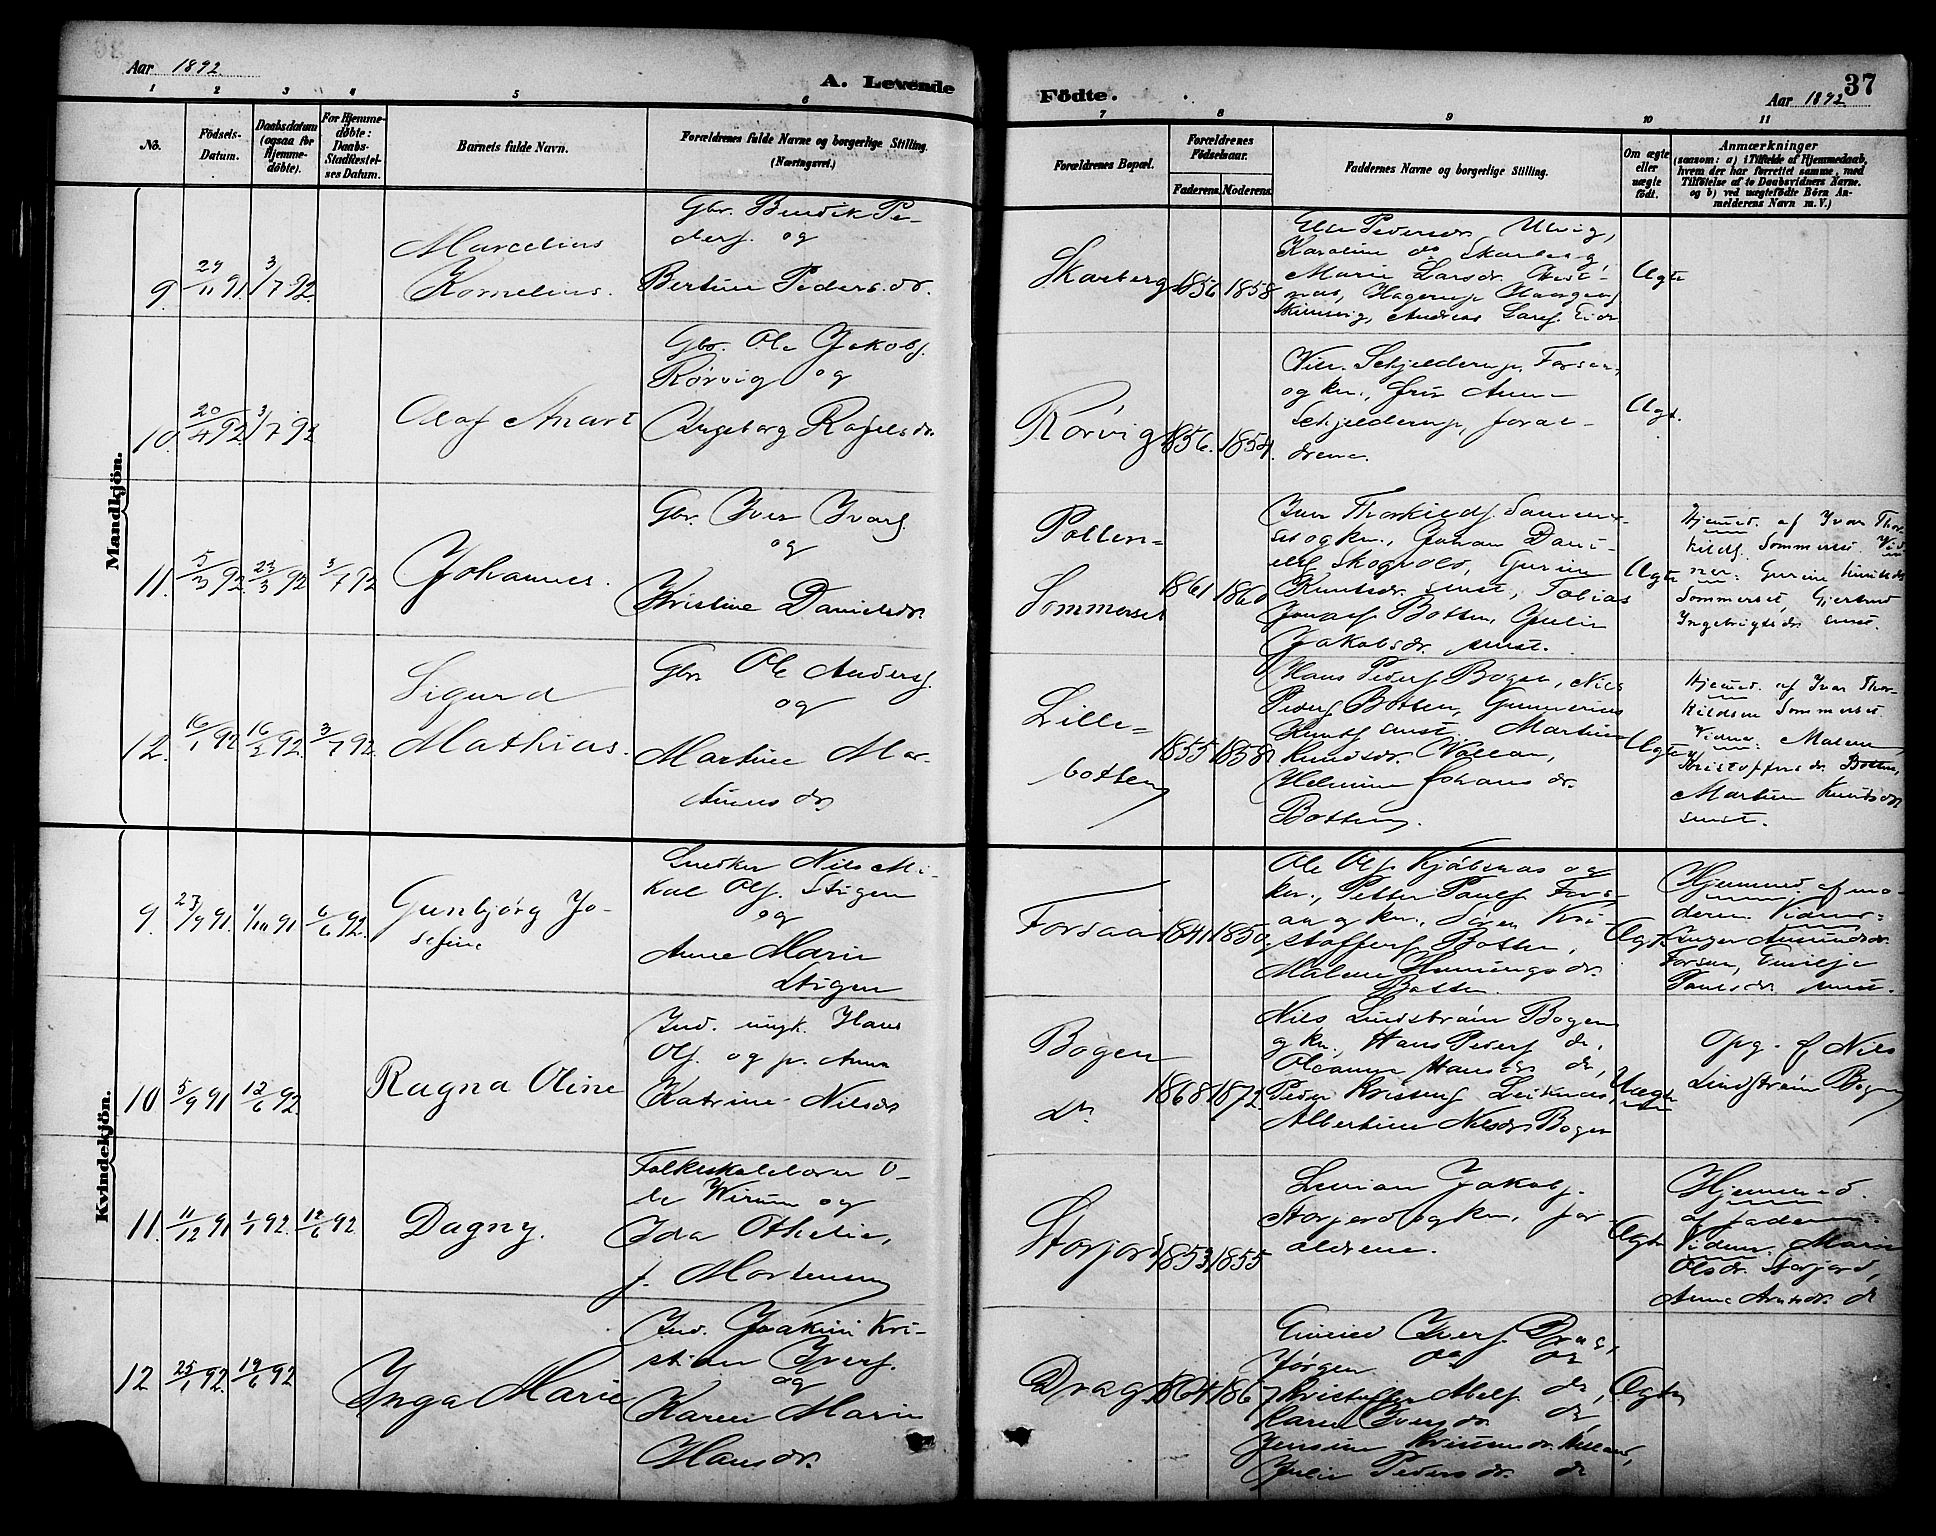 Aar 1892
A. Levende
Födte.
37
Aar 1892
1 2 3 4 5 6 7 8 9 10 11
No.
Födsels-
Datum.
Daabsdatum
(ogsaa for
Hjemme-
döbte).
For Hjemme-
döbte:
Daabs-
Stadfæstel-
ses Datum.
Barnets fulde Navn.
Forældrenes fulde Navne og borgerlige Stilling.
(Næringsvei.)
Forældrenes Bopæl.
Forældrenes
Födselsaar.
Faderens. Moderens.
Faddernes Navne og borgerlige Stilling.
Om ægte
eller
uægte
födt.
Anmærkninger
(saasom: a) i Tilfælde af Hjemmedaab,
hvem der har forrettet samme, med
Tilföielse af to Daabsvidners Navne.
og b) ved uægtefödte Börn An-
melderens Navn m. V.)
Mandkjön.
9. 29/11 91 3/7 92.
Marcelius
Kornelius.
Gbr. Bendik Pe-
ders. og
Bertine Pedersdr.
Skarberg 1856 1858
Pedersdr. Ulvig,
Karoline do Skarberg,
Marie Larsdr. Hest-
næs, Hagerup
Andreas Lars.
Ægte
10. 20/4 92. 3/7 92
Olaf Anart
Gbr. Ole Jakobs.
Rørvig og
Ingeborg Rafelsdr.
Rørvig 1856. 1854.
Schjelderup, Forsaa,
og kn., frk Anna
Schjelderup, foræl-
drene.
Ægt.
11. 5/3 92. 23/3 92 3/7 92
Johannes.
Gbr. Iver Ivars.
og
Kristine Danielsdr.
Pollen-
Sommerset 1861 1860
Iver Thorkilds. Sommer-
set og kn., Johan Dani-
els. Skogvold, Gurine
Knutsdr. smst., Tobias
Jonas. Botten, Julie
Jakobsdr. smst.
Ægte
Hjemmed. af Ivar Thor-
kilds. Sommerset. Vid-
ner: Gurine Knutsdr.
Sommerset, Gjertrud
Ingebrigtsdr. smst.
12. 16/1 92 16/2 92. 3/7 92.
Sigurd
Mathias.
Gbr. Ole Anders.
og
Martine Mar-
tinusdr.
Lille-
botten 1855 1858
Hans Peders. Bogen, Nils
Peders. Botten, Gunnerius
Knuts. smst. Martine
Knudsdr.
Helmine Johansdr.
Botten.
Ægte
Hjemmed. af Ivar Thor-
kildsen Sommerset.
Vidner: Malene
Kristoffersdr. Botten,
Martine Knutsdr.
smst.
Kvindekjön.
9. 23/9 91 1/10 91 6/6 92.
Gunbjørg Jo-
sefine
Snedker Nils Mi-
kal Ols. Stigen
og
Anne Marie
Stigen
Forsaa 1841 1850
Ole Ols. Kjøbsnæs og
kn., Petter Pauls. Fors-
aa og kn., Søren Kri-
stoffers. Botten,
Malene Henningsdr.
Botten.
Ægt.
Hjemmed. af mo-
deren. Vidner:
Inger Amundsdr.
Forsaa, Emilje
Paulsdr. smst.
10 5/9 91 12/6 92.
Ragna Oline
Ind. ungk. Hans
Ols. og p. Anna
Katrine Nilsdr.
Bogen
do. 1868 1872.
Nils Lindstrøm Bogen
og kn., Hans Peders. do,
Oleanna Hansdr. do,
Peder Kristens. Leiknes,
Albertine Nilsdr. Bogen
Uægte
Opg. af Nils
Lindstrøm Bogen
11. 11/12 91 1/1 92. 12/6 92.
Dagny.
Folkeskolelærer O-
le Wirum og
Ida Othelie,
f. Mortensen
Storjord 1853. 1855
Jakobs.
Storjord og kn., for-
ældrene.
Ægte
Hjemmed.
af faderen.
Vidner: Marie
Olsdr. Storjord,
Anna Arntsdr. do
12 25/1 92. 19/6 92
Inga Marie
Ind. Joakim Kri-
stian Ivers.
og
Karen Marie
Hansdr.
Drag. 1864 1867
Ivers. Drag,
Jørgen do do
Kristoffer Abels. do,
Karen Iversdr. do,
Jensine Kristensdr.
Julie Pedersdr. do
Ægte